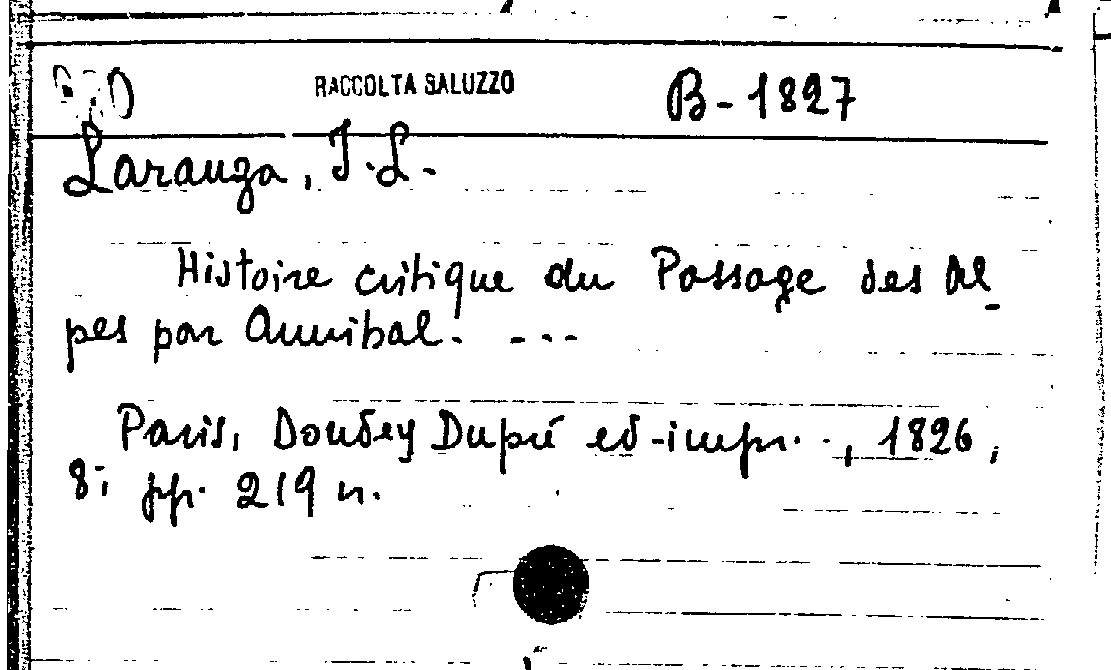 RACCOLTA SALUZZO B-1827
Larauza, J.L.
Histoire critique du Passage des Al_
pes par Annibal. ...
Paris, Dondey Dupré ed-impr.., 1826,
8; pp. 219 n.